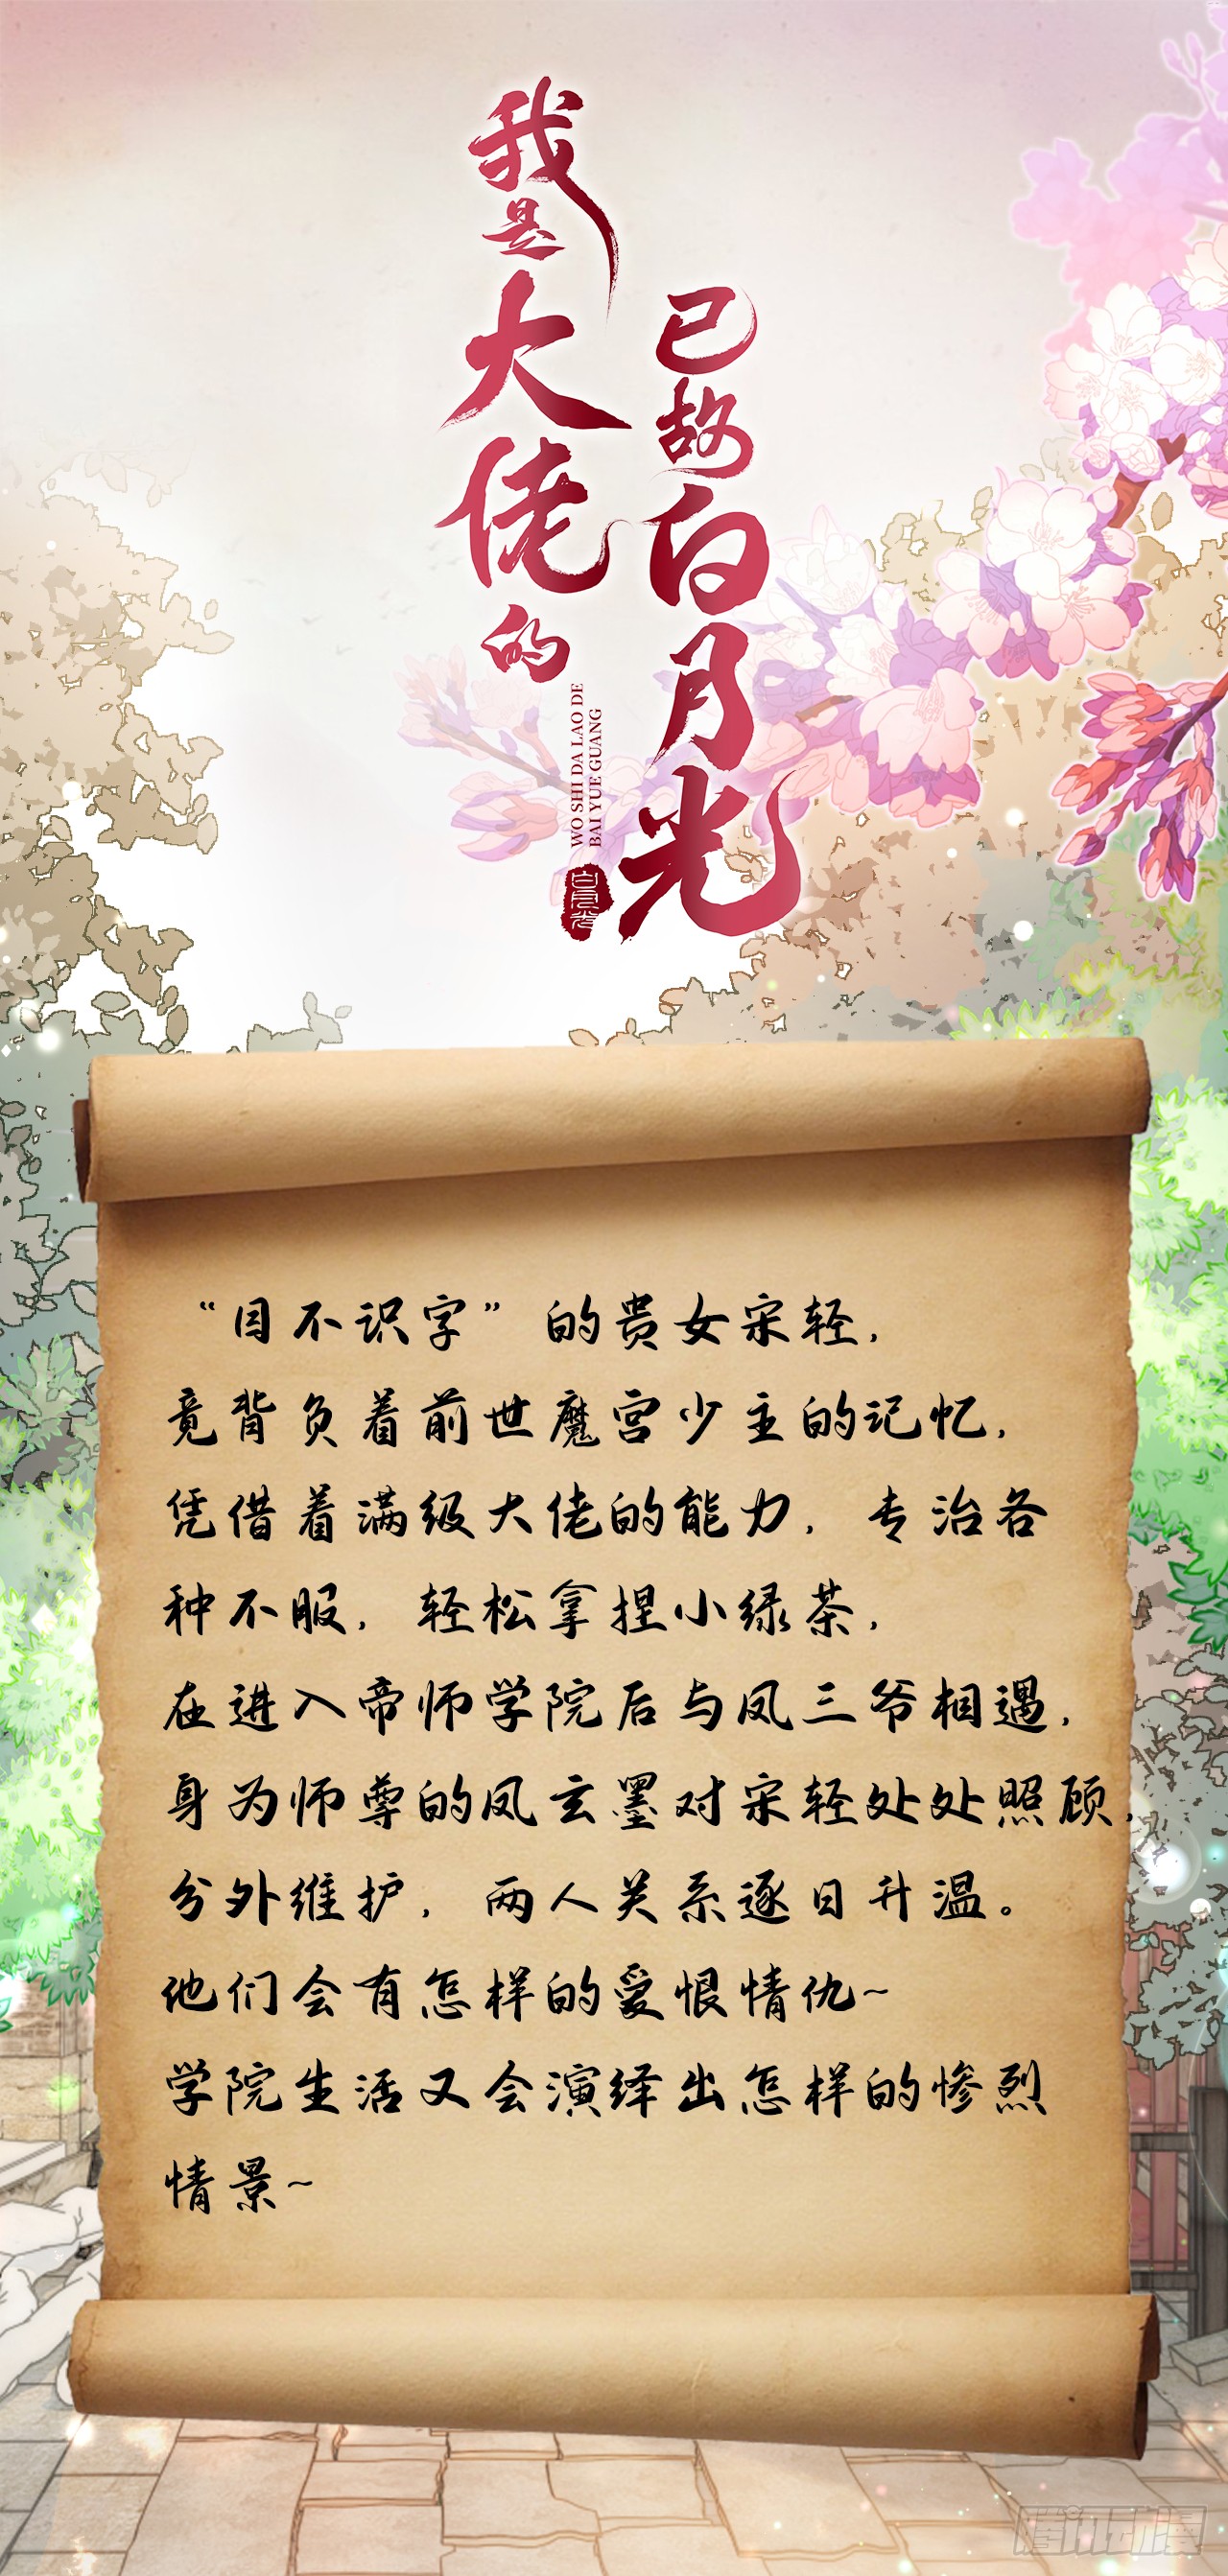 我是大佬的
已故白月光
WO SHI DA LAO DE
BAI YUE GUANG
白月光
“目不识字”的贵女宋轻，
竟背负着前世魔宫少主的记忆，
凭借着满级大佬的能力，专治各
种不服，轻松拿捏小绿茶，
在进入帝师学院后与凤三爷相遇，
身为师尊的凤玄墨对宋轻处处照顾，
分外维护，两人关系逐日升温。
他们会有怎样的爱恨情仇~
学院生活又会演绎出怎样的惨烈
情景~
腾讯动漫